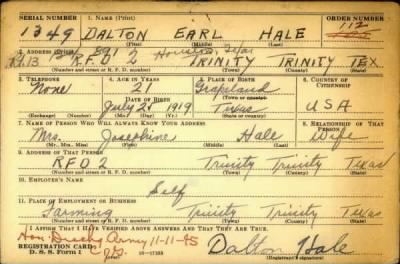 SERIAL NUMBER 1. NAME (Print) ORDER NUMBER
1349 DALTON EARL HALE 112
(First) (Middle) (Last)
2. ADDRESS (Print) 891 Houston, Texas
Rt. 13 R.F.D. 2 TRINITY TRINITY TEX
(Number and street or R. F. D. number) (Town) (County) (State)
3. TELEPHONE 4. AGE IN YEARS 5. PLACE OF BIRTH 6. COUNTRY OF CITIZENSHIP
None 21 Grapeland
DATE OF BIRTH (Town or county)
July 21 1919 Texas USA
(Exchange) (Number) (Mo.) (Day) (Yr.) (State or country)
7. NAME OF PERSON WHO WILL ALWAYS KNOW YOUR ADDRESS 8. RELATIONSHIP OF THAT PERSON
Mrs. Josephine Hale Wife
(Mr., Mrs., Miss) (First) (Middle) (Last)
9. ADDRESS OF THAT PERSON
RFD 2 Trinity Trinity Texas
(Number and street or R. F. D. number) (Town) (County) (State)
10. EMPLOYER'S NAME
Self
11. PLACE OF EMPLOYMENT OR BUSINESS
Farming Trinity Trinity Texas
(Number and street or R. F. D. number) (Town) (County) (State)
I AFFIRM THAT I HAVE VERIFIED ABOVE ANSWERS AND THAT THEY ARE TRUE.
Hon. Disch. Army 11-11-45
REGISTRATION CARD
D. S. S. FORM 1 Dalton Hale
(Registrant's signature)